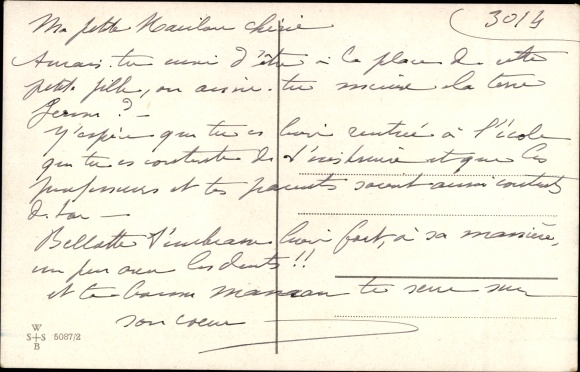 3014
Ma petite chérie
Aurais-tu envie d'être à la place de cette
petite fille, ou aimes-tu mieux la terre
ferme ? -
J'espère que tu es bien rentrée à l'école
que tu es contente de t'instruire et que les
professeurs et tes parents soient aussi contents
de toi -
Bellotte t'embrasse bien fort, à sa manière,
un peu avec les dents !!
et ta bonne maman te serre sur
son coeur
W
S+S 5087/2
B